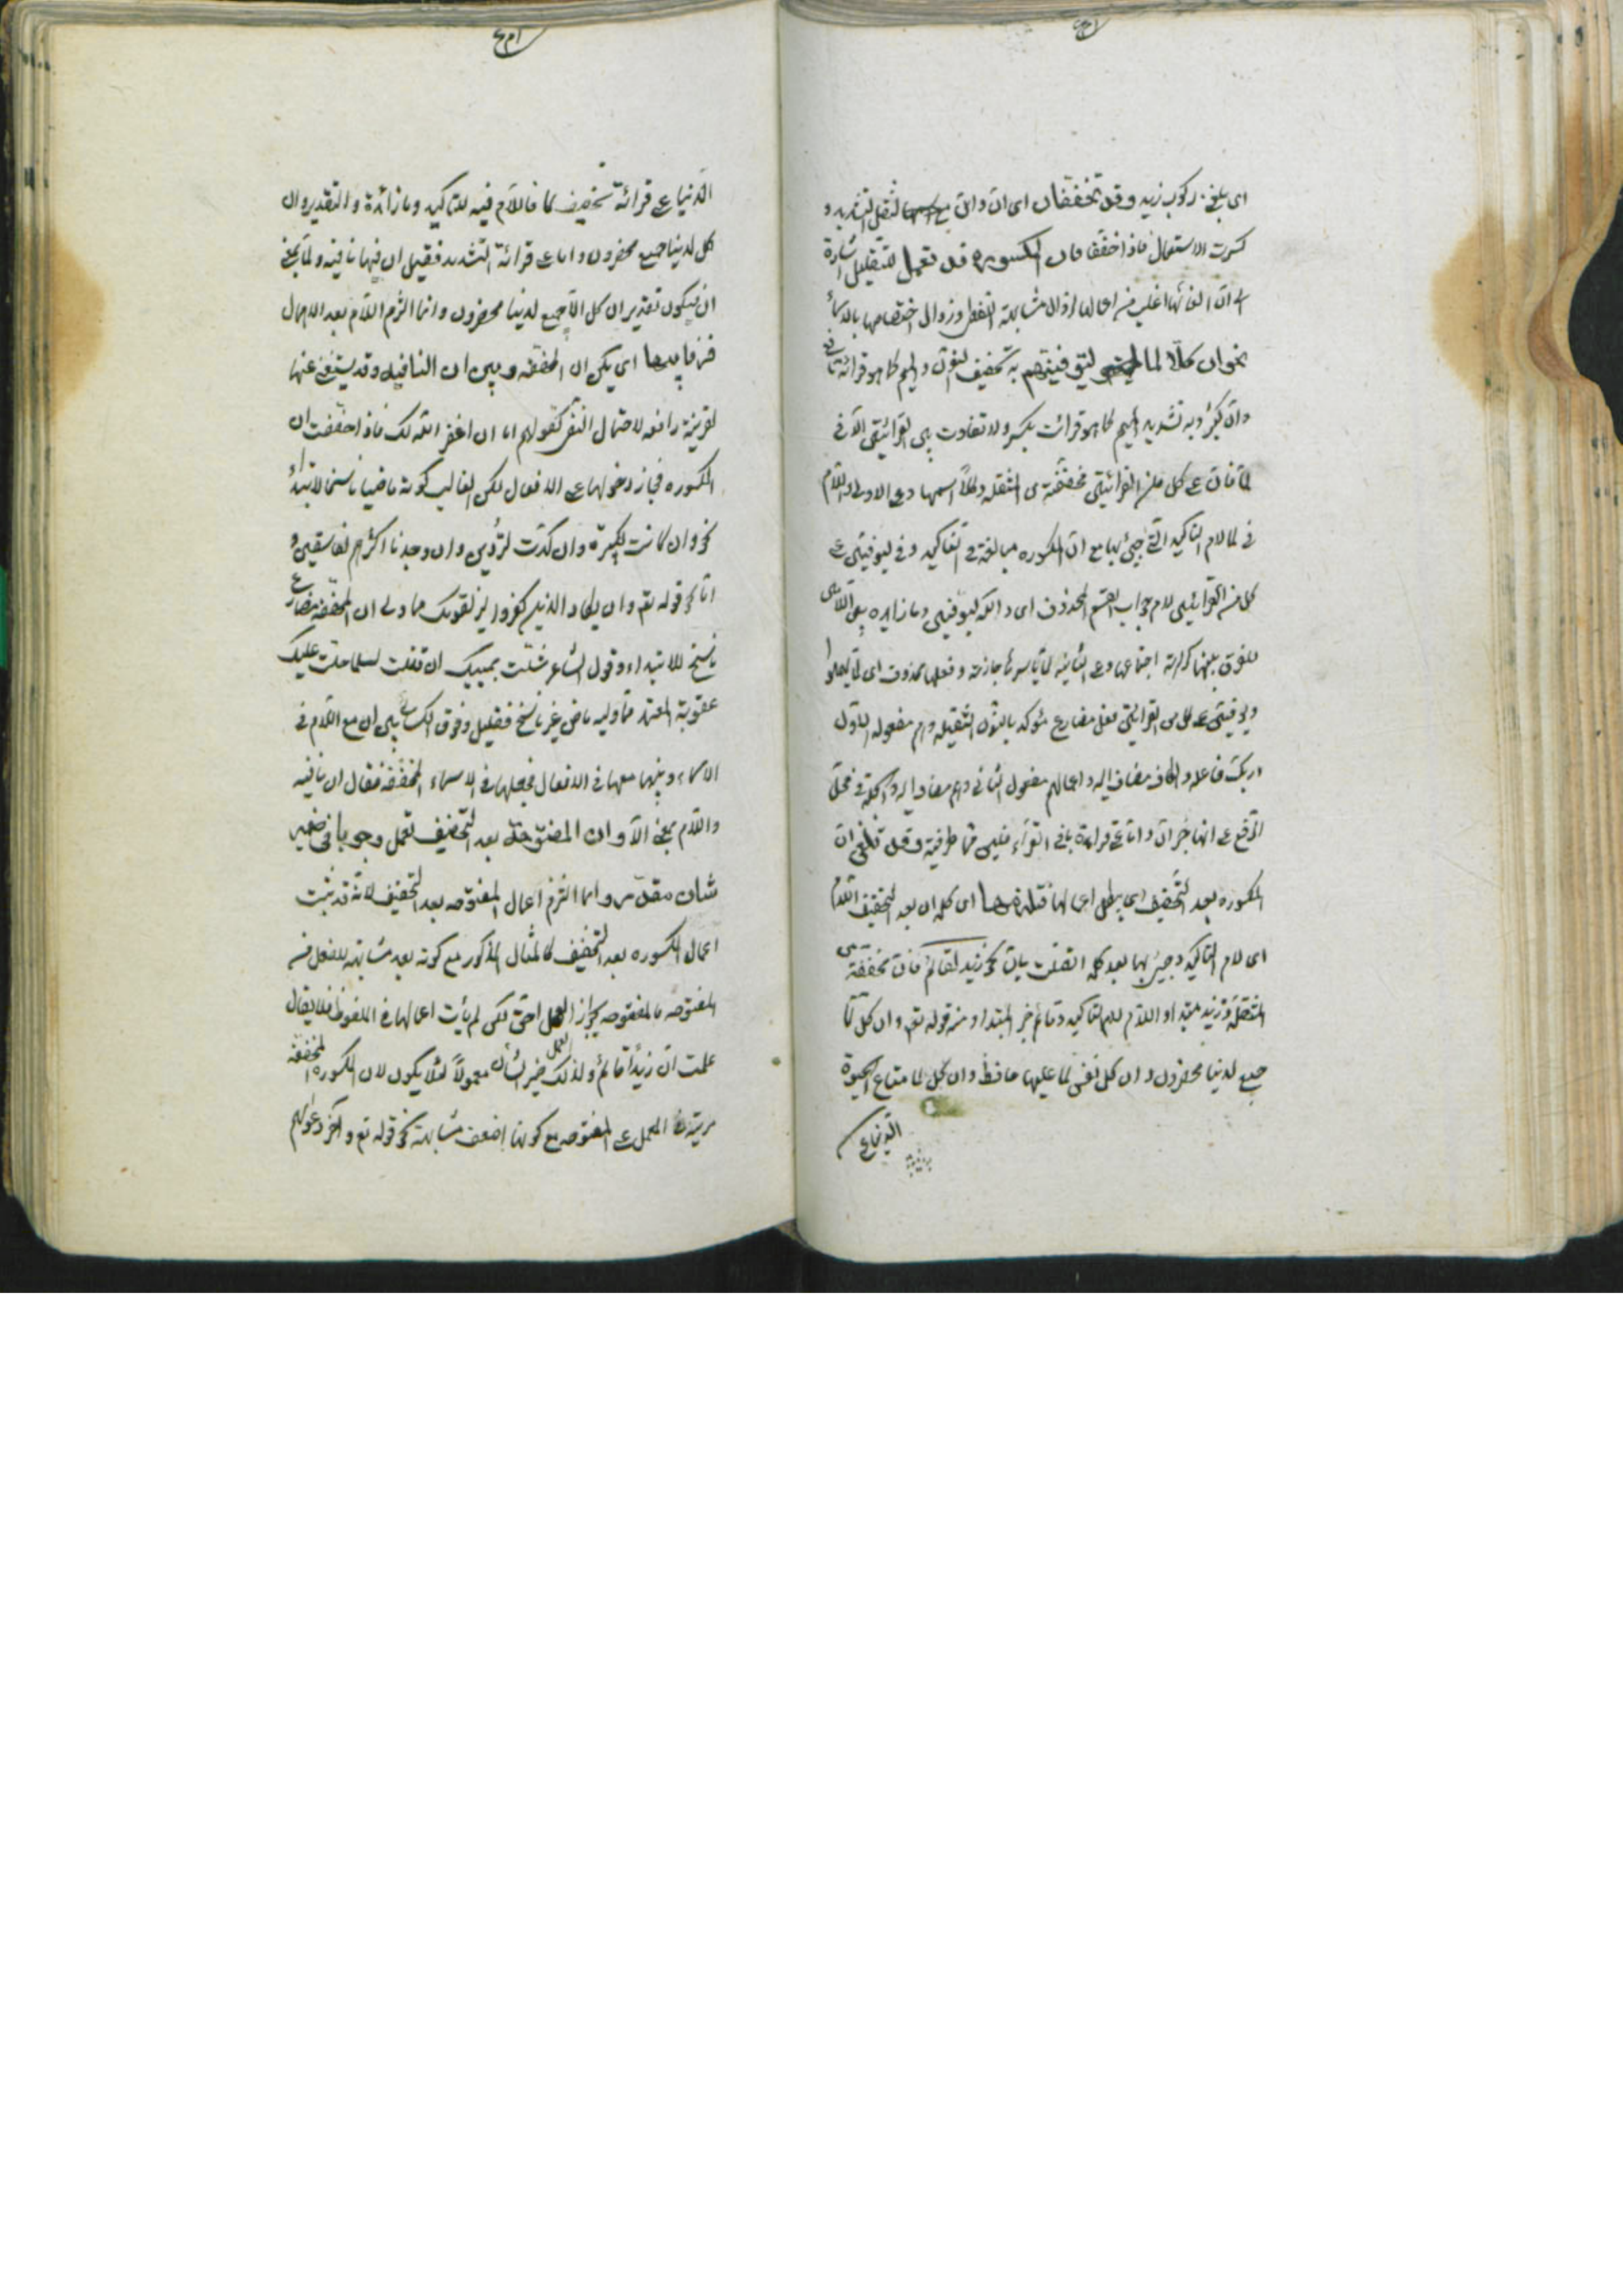 اى بلغنى ركوب زيد وقد تخففان اى انّ وانّ مع لثقل التشديد و
كثرت الاستعمال فاذا خففا فان المكسوره قد تعمل للتقليل اشارة
الى انّ الغائها اغلب من اعمالها لزوال مشابهة الفعل وزوال اختصاصها بالاسماء
نحو ان كلّا لما ليوفينهم به تخفيف النون والميم كما هو قرائة نافع
وابن كثير وبه تشديد الميم كما هو قرائت بكر ولا تفاوت بين القرائتين الّا فى
لمّا فانّ على كل من القرائتين مخففة من المثقله وكلّاً اسمها وعلى الاول اللام
فى لما لام التاكيد التى جئ بها مع انّ المكسوره مبالغة فى التاكيد وفى ليوفينّ على
كل من القرائتين لام جواب القسم المحذوف اى والله ليوفينّ وما زايده بين اللامين
للفرق بينهما كراهة اجتماعهما وعلى الثانية لمّا باسرها جازمة وفعلها محذوف اى لمّا يهملوا
وليوفينّ على كل من القرائتين فعل مضارع مؤكد بالنون الثقيله وهم مفعوله الاول
وربك فاعله والكاف مضاف اليه واعمالهم مفعول الثانى وهم مضاف اليه والجملة فى محل
الرفع على انها خبر انّ واما على قراءة باقى القرّاء فليس مما طرفية وقد تلغى انّ
المكسوره بعد التخفيف اى يبطل اعمالها فتلزمها اى كلمه ان بعد التخفيف اللام
اى لام التاكيد وجئ بها بعد كلمه اتصلت بان نحو ان زيد لقائم فان مخففة من
المثقلة وزيد مبتدا واللام لام التاكيد وقائم خبر المبتدا ومنه قوله تع وان كل لمّا
جميع لدينا محضرون وان كل نفس لما عليها حافظ وان كل لما متاع الحيوة
الدنيا على
الدنيا على قرائة تخفيف لما فاللام فيه للتاكيد وما زائدة والتقدير وان
كل لدينا جميع محضرون واما على قرائة التشديد فقيل ان فيها نافيه ولمّا بمعنى
الّا فيكون تقديره ان كل الّا جميع لدينا محضرون وانما الزم اللام بعد الاهمال
فرقا بينها اى بين ان المخففه وبين ان النافيه وقد يستغنى عنها
لقرينة رافعه لاحتمال النفى كقولهم اما ان اغفر الله لك فاذا خففت ان
المكسوره فجاز دخولها على الافعال لكن الغالب كونه ماضيا ناسخا لابتداء
نحو وان كانت لكبيرة وان كدت لتردين وان وجدنا اكثرهم لفاسقين و
اما نحو قوله تع وان يكاد الذين كفروا ليزلقونك مما ولى ان المخففه مضارع
ناسخ للابتداء وقول الشاعر شلّت يمينك ان قتلت لمسلما حلّت عليك
عقوبة المعتمد مما وليه ماض غير ناسخ فقليل وفرق الكسائى بين ان مع اللام فى
الاسماء وبينها معها فى الافعال فجعلها فى الاسماء المخففه فقال ان نافيه
واللام بمعنى الّا وان المفتوحة بعد التخفيف تعمل وجوبا فى ضمير
شان مقدّر وانما الزم اعمال المفتوحه بعد التخفيف لانّه قد يثبت
اعمال المكسوره بعد التخفيف كالمثال المذكور مع كونه بعيد مشابهة للفعل من
المفتوحه فالمفتوحه بجواز العمل احق لكن لم يأت اعمالها فى الملفوظ فلا يقال
علمت ان زيداً قائم ولذلك ضمير الشأن معمولاً لئلا يكون لان المكسوره المخففه
مزيّة فى العمل على المفتوحه مع كونها اضعف مشابهة نحو قوله تع وآخر دعوٰهم